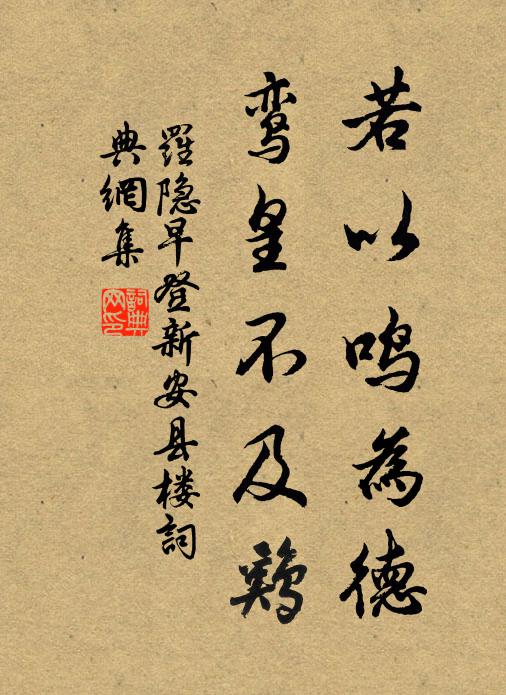 若以鸣為德
鸾皇不及鷄
羅隐早登新安县楼詞
典網集
詞典网印